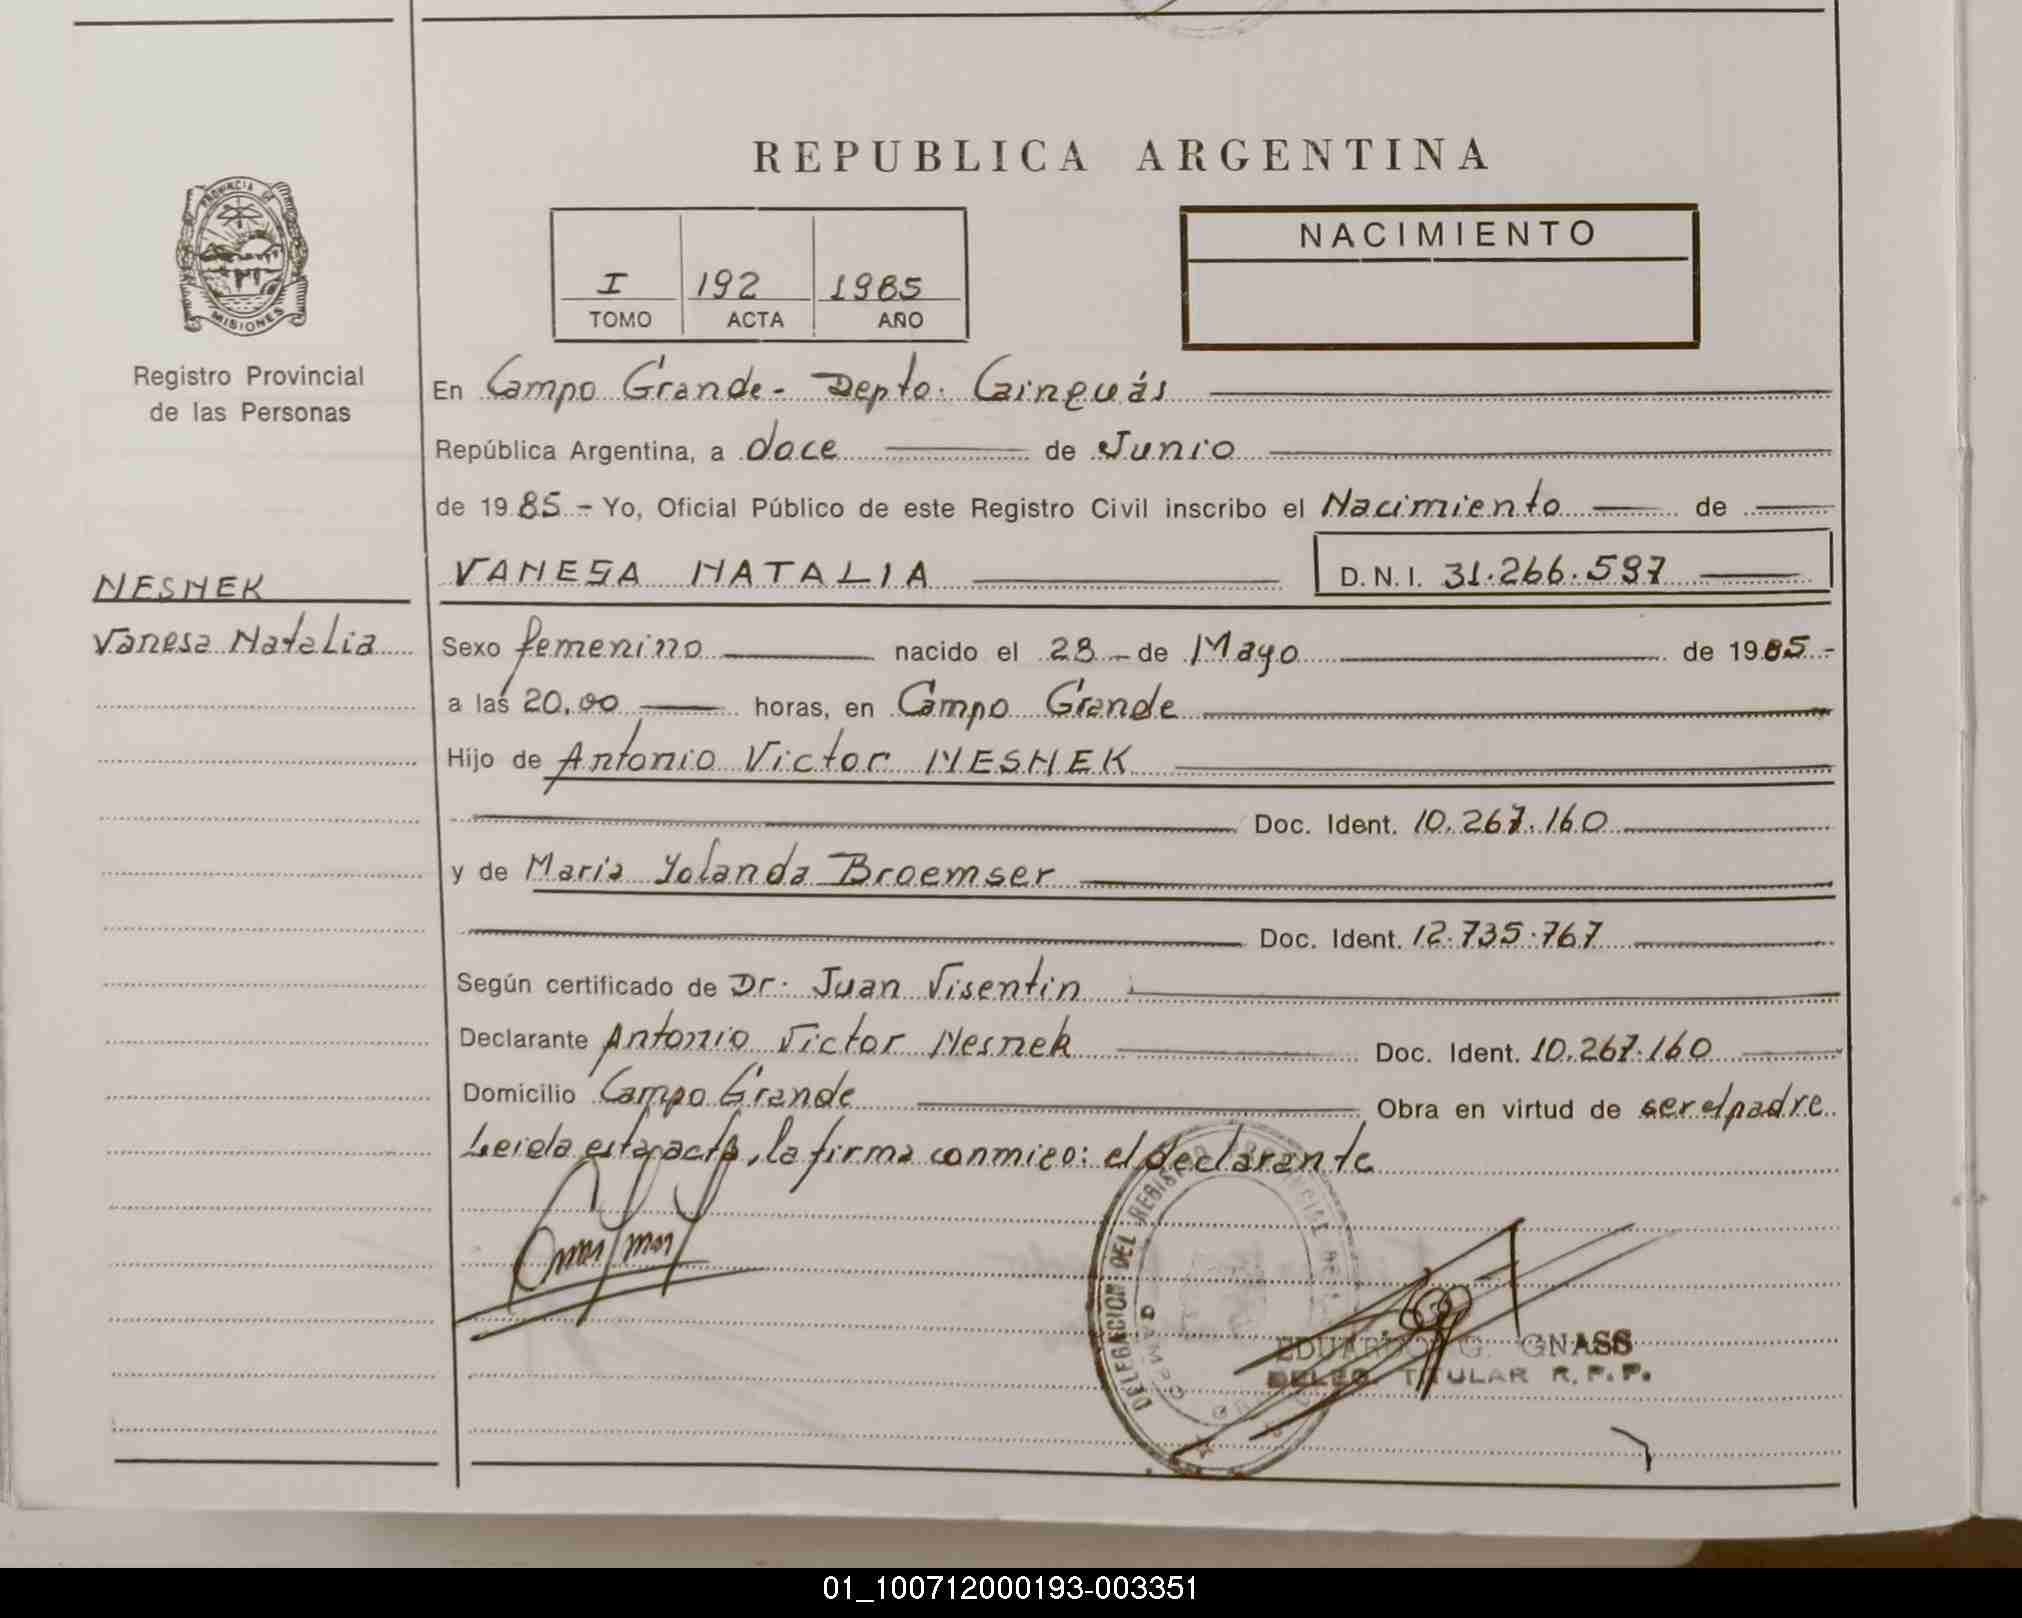 REPUBLICA ARGENTINA
PROVINCIA DE
MISIONES
Registro Provincial
de las Personas
I 192 1985
TOMO ACTA AÑO
NACIMIENTO
En Campo Grande - Depto. Cainguás
República Argentina, a doce de Junio
de 1985 - Yo, Oficial Público de este Registro Civil inscribo el Nacimiento de
NESNEK
Vanesa Natalia
VANESA NATALIA D.N.I. 31.266.597
Sexo femenino nacido el 28 - de Mayo de 1985 -
a las 20,00 horas, en Campo Grande
Hijo de Antonio Victor NESNEK
Doc. Ident. 10.267.160
y de Maria Yolanda Broemser
Doc. Ident. 12.735.767
Según certificado de Dr. Juan Visentin
Declarante Antonio Victor Nesnek Doc. Ident. 10.267.160
Domicilio Campo Grande Obra en virtud de ser el padre
Leida esta acta, la firma conmigo: el declarante
DELEGACION DEL REGISTRO PROVINCIAL DE
CAMPO
EDUARDO G. GNASS
DELEG. TITULAR R.P.P.
01_100712000193-003351